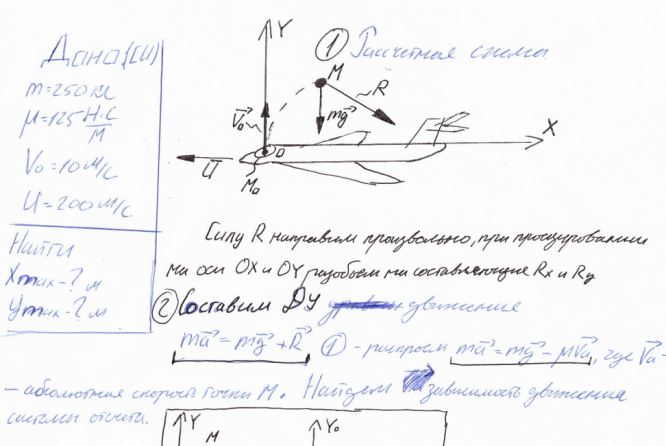 Дано (СИ)
m=250 кг
μ=125 Н·с/м
V₀=10 м/с
U=200 м/с
Найти
Xmax-? м
Ymax-? м
① Расчетная схема
Y
M
R
mg
V₀
O
X
U
M₀
Силу R направим произвольно, при проецировании
на оси OX и OY разобьем на составляющие Rx и Ry
② Составим ДУ движение
ma = mg + R ① - раскроем ma = mg - μVa, где Va-
- абсолютная скорость точки М. Найдем зависимость движения
системы отсчета.
Y
M
Y₀